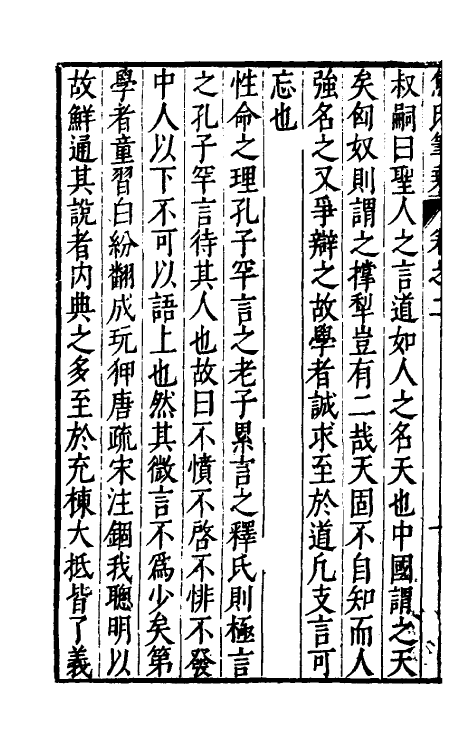 焦氏筆乘　卷之二
叔嗣曰聖人之言道如人之名天也中國謂之天
矣匈奴則謂之撑犁豈有二哉天固不自知而人
強名之又爭辯之故學者誠求至於道凡支言可
忘也
性命之理孔子罕言之老子累言之釋氏則極言
之孔子罕言待其人也故曰不憤不啓不悱不發
中人以下不可以語上也然其微言不爲少矣第
學者童習白紛翻成玩狎唐疏宋注錮我聰明以
故鮮通其說者內典之多至於充棟大抵皆了義